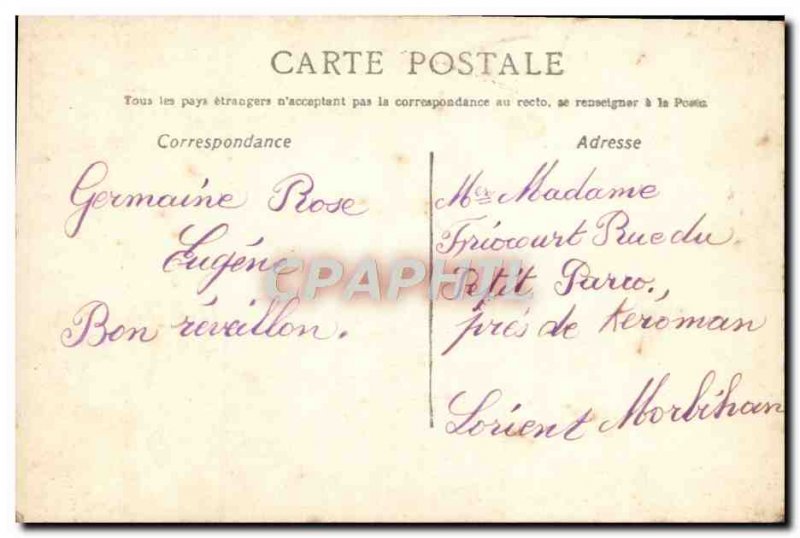 CARTE POSTALE
Tous les pays étrangers n'acceptant pas la correspondance au recto, se renseigner à la Poste.
Correspondance
Germaine Rose
Eugéne
Bon réveillon.
Adresse
Madame
Fricourt Rue du
Petit Parco,
prés de Keroman
Lorient Morbihan
CPAPHIL